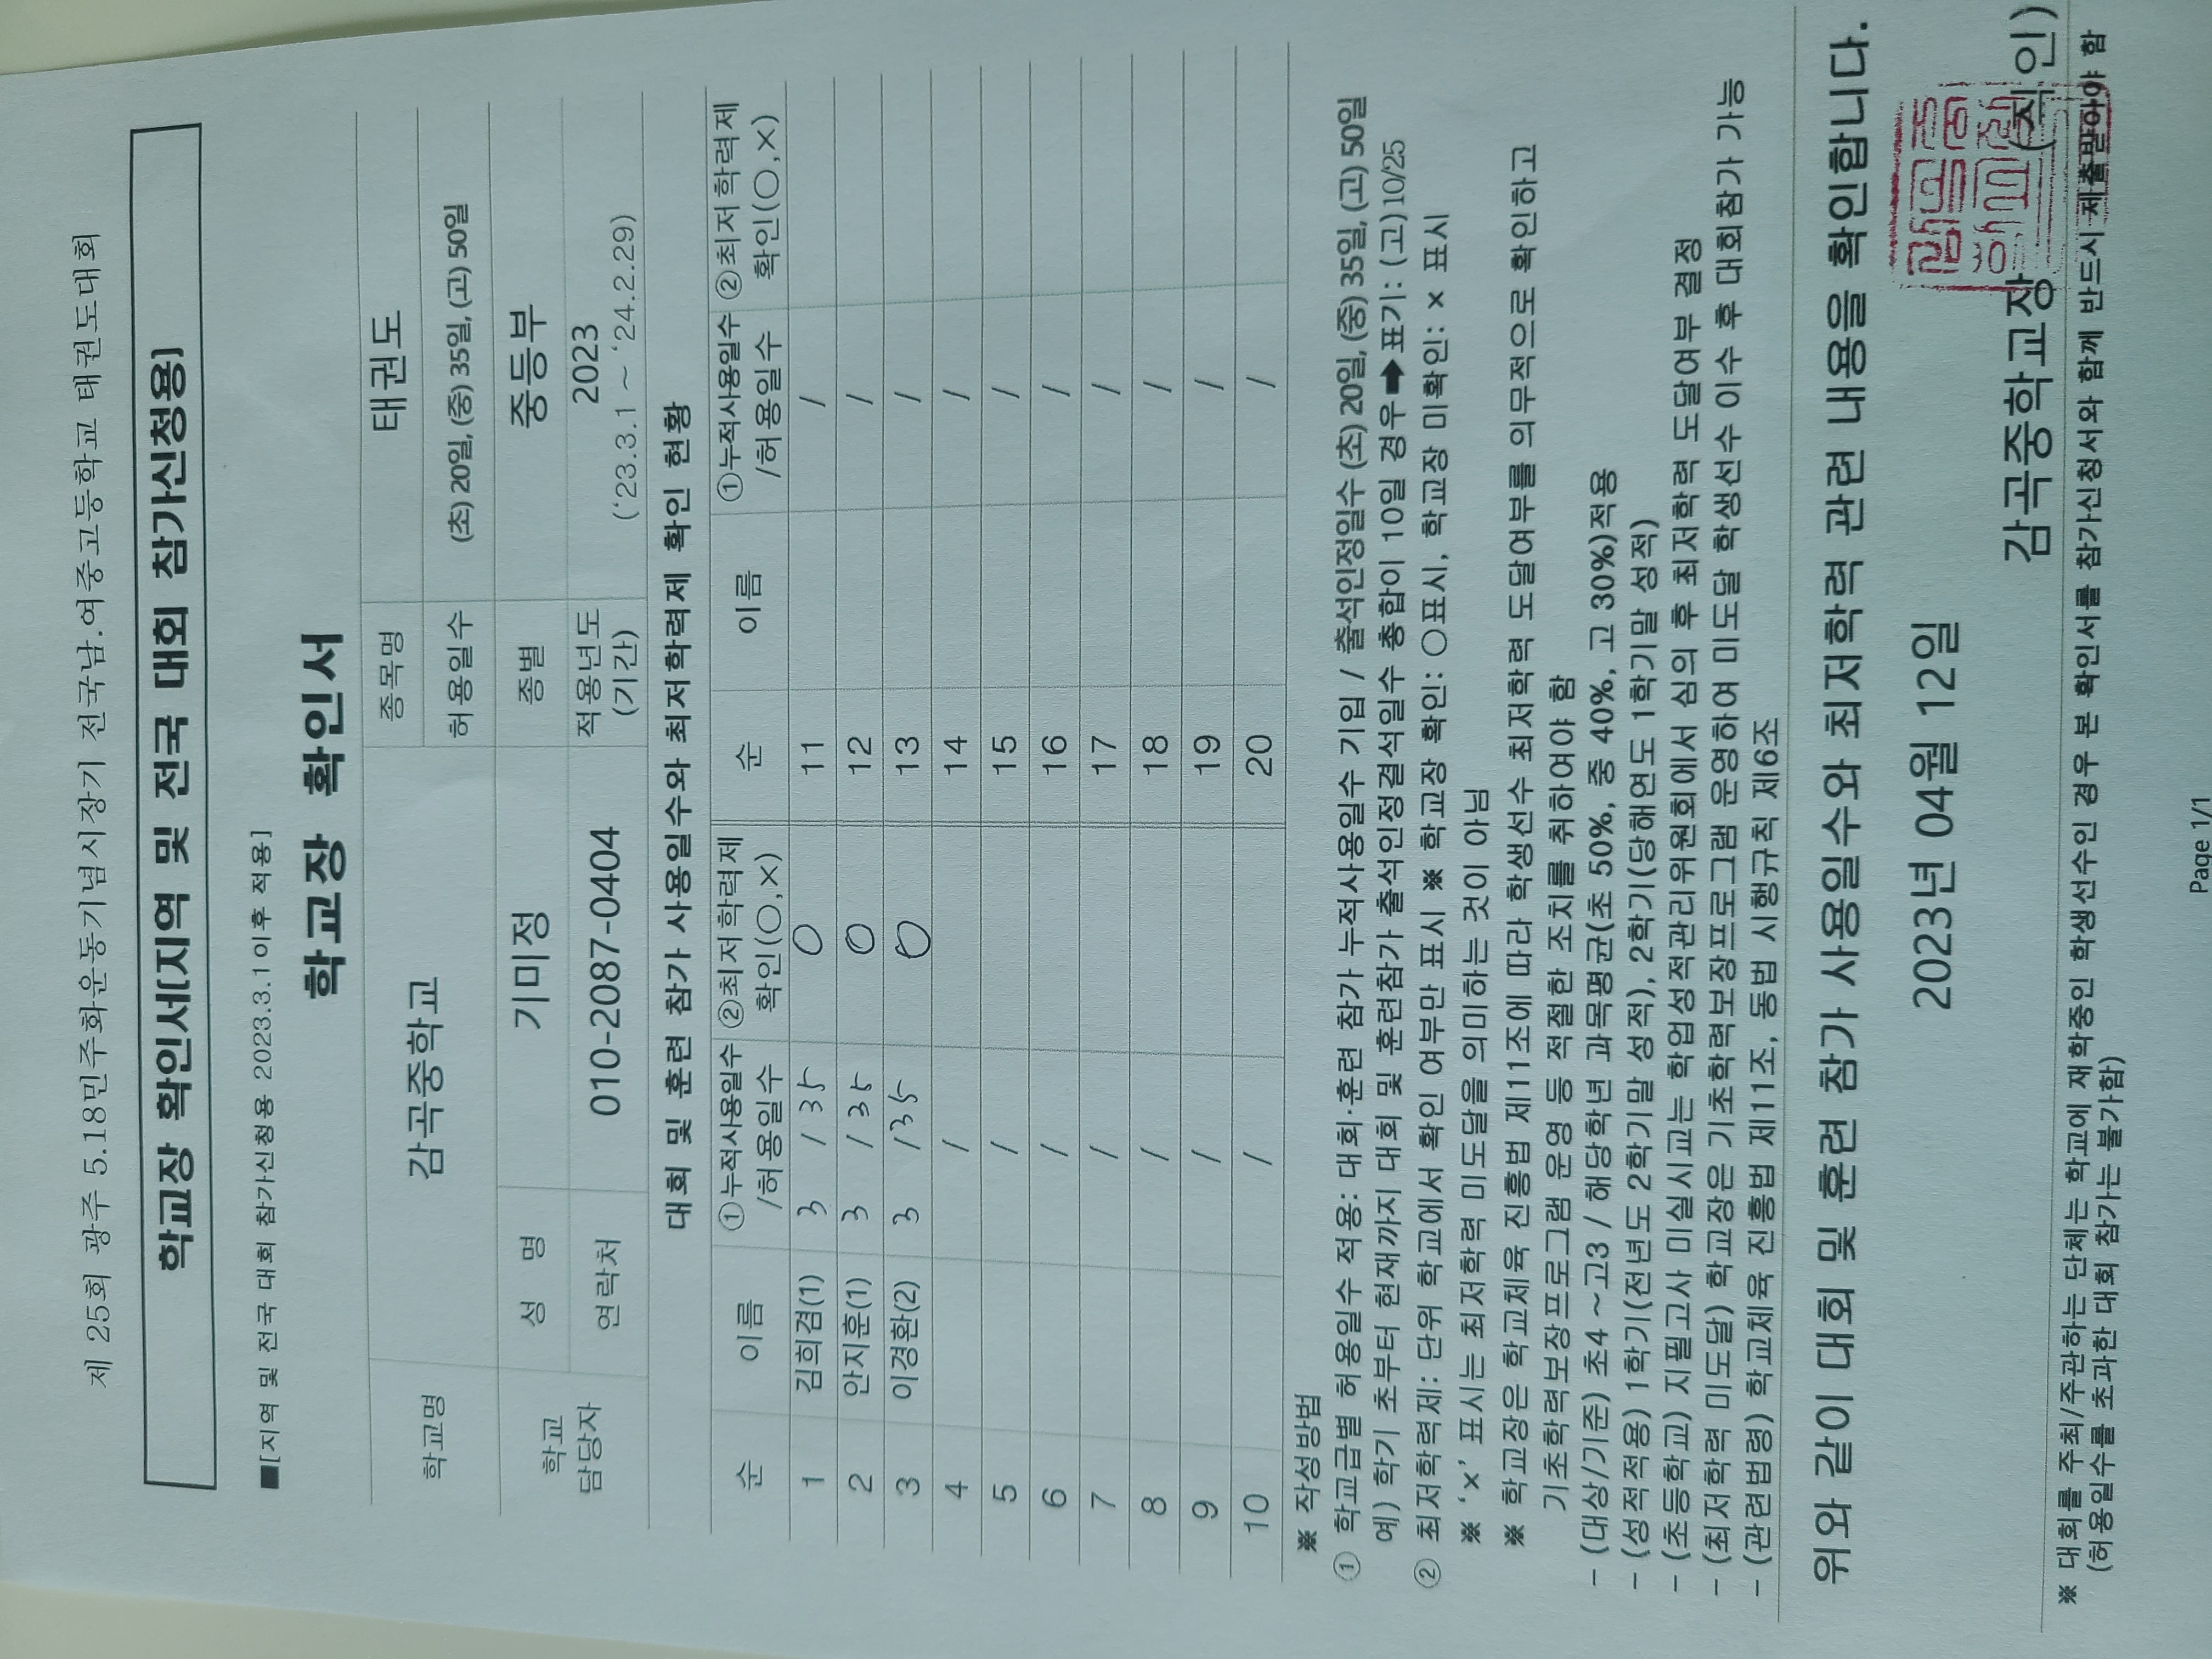 제 25회 광주 5.18민주화운동기념시장기 전국남.여중고등학교 태권도대회
학교장 확인서[지역 및 전국 대회 참가신청용]
■[지역 및 전국 대회 참가신청용 2023.3.1이후 적용]
학교장 확인서
학교명 감곡중학교 종목명 태권도
허용일수 (초) 20일, (중) 35일, (고) 50일
학교 담당자 성 명 기미정 종별 중등부
연락처 010-2087-0404 적용년도 (기간) 2023 ('23.3.1 ~ '24.2.29)
대회 및 훈련 참가 사용일수와 최저학력제 확인 현황
순 이름 ①누적사용일수 /허용일수 ②최저학력제 확인(○,×) 순 이름 ①누적사용일수 /허용일수 ②최저학력제 확인(○,×)
1 김희겸(1) 3 / 35 ○ 11 /
2 안지훈(1) 3 / 35 ○ 12 /
3 이경환(2) 3 / 35 ○ 13 /
4 / 14 /
5 / 15 /
6 / 16 /
7 / 17 /
8 / 18 /
9 / 19 /
10 / 20 /
※ 작성방법
① 학교급별 허용일수 적용: 대회·훈련 참가 누적사용일수 기입 / 출석인정일수 (초) 20일, (중) 35일, (고) 50일
예) 학기 초부터 현재까지 대회 및 훈련참가 출석인정결석일수 총합이 10일 경우➡표기: (고)10/25
② 최저학력제: 단위 학교에서 확인 여부만 표시 ※ 학교장 확인: ○표시, 학교장 미확인: × 표시
※ '×' 표시는 최저학력 미도달을 의미하는 것이 아님
※ 학교장은 학교체육 진흥법 제11조에 따라 학생선수 최저학력 도달여부를 의무적으로 확인하고
기초학력보장프로그램 운영 등 적절한 조치를 취하여야 함
- (대상/기준) 초4 ~고3 / 해당학년 과목평균(초 50%, 중 40%, 고 30%)적용
- (성적적용) 1학기(전년도 2학기말 성적), 2학기(당해연도 1학기말 성적)
- (초등학교) 지필고사 미실시교는 학업성적관리위원회에서 심의 후 최저학력 도달여부 결정
- (최저학력 미도달) 학교장은 기초학력보장프로그램 운영하여 미도달 학생선수 이수 후 대회참가 가능
- (관련법령) 학교체육 진흥법 제11조, 동법 시행규칙 제6조
위와 같이 대회 및 훈련 참가 사용일수와 최저학력 관련 내용을 확인합니다.
2023년 04월 12일
감곡중학교장 (직인)
※ 대회를 주최/주관하는 단체는 학교에 재학중인 학생선수인 경우 본 확인서를 참가신청서와 함께 반드시 제출받아야 함
(허용일수를 초과한 대회 참가는 불가함)
Page 1/1